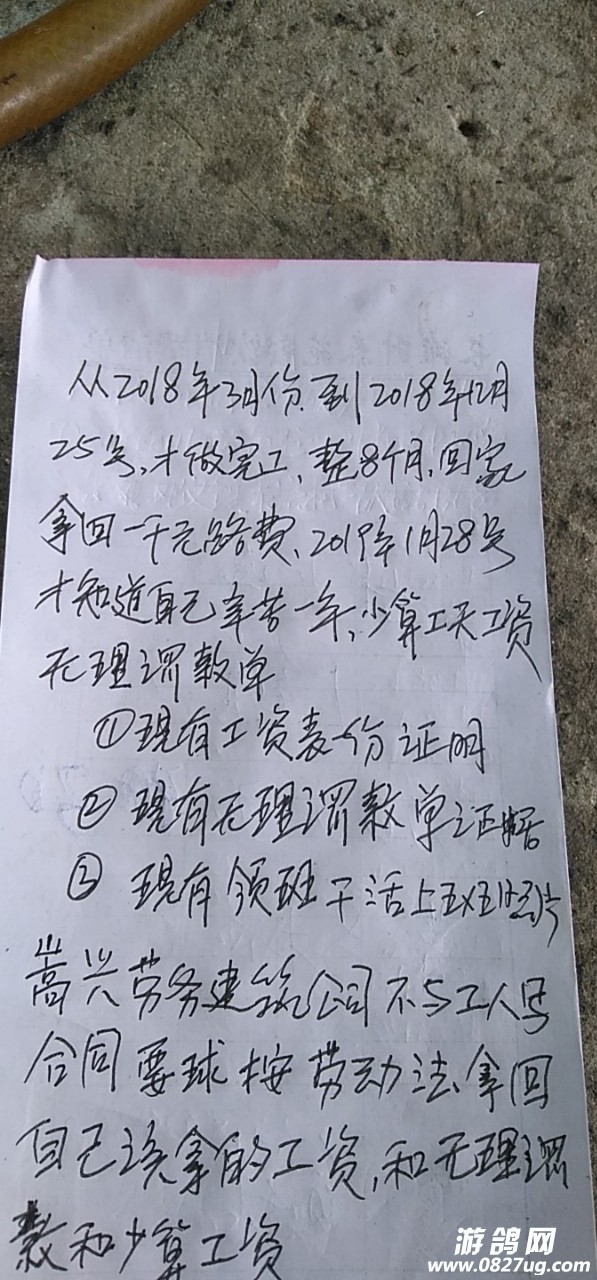 从2018年3月份到2018年12月
25号,才做完工,整8个月,回家
拿回一千元路费、2019年1月28号
才知道自己辛苦一年,少算工天工资
无理罚款单
①现有工资表一份证明
②现有无理罚款单证据
③现有领班干活上
嵩兴劳务建筑公司不与工人写
合同要球按劳动法拿回
自己该拿的工资,和无理罚
款和少算工资
游鸽网
www.0827ug.com